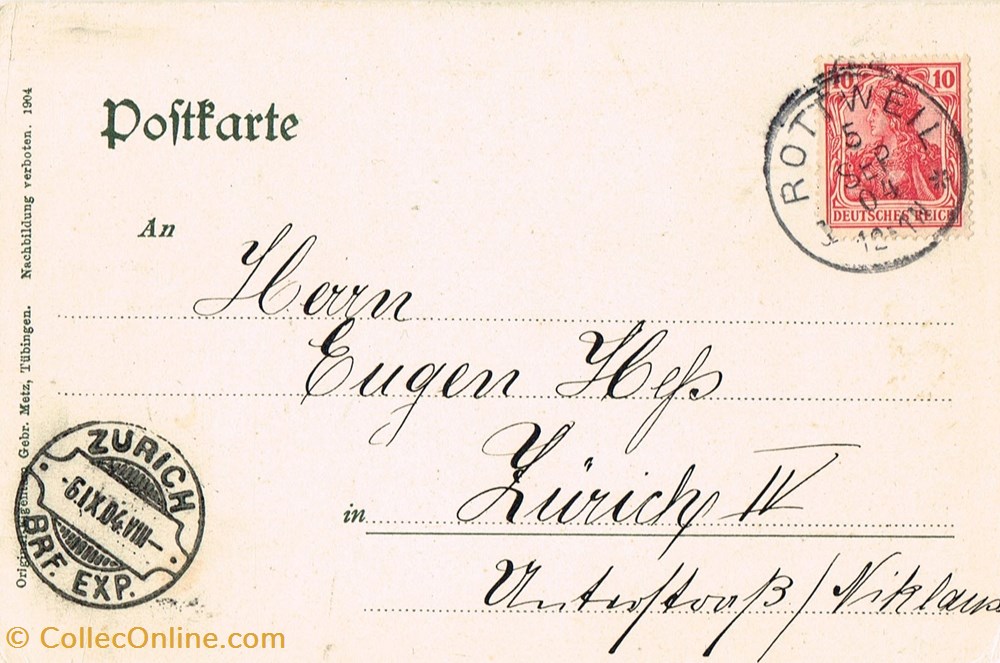 Postkarte
10 10
DEUTSCHES REICH
ROTTWEIL
5
SEP
04
12-1N
An
Herrn
Eugen Heß
in Zürich IV
Unterstraß / Niklaus
ZURICH
-6.IX.04.VIII-
BRF. EXP.
Gebr. Metz, Tübingen. Nachbildung verboten. 1904
© CollecOnline.com